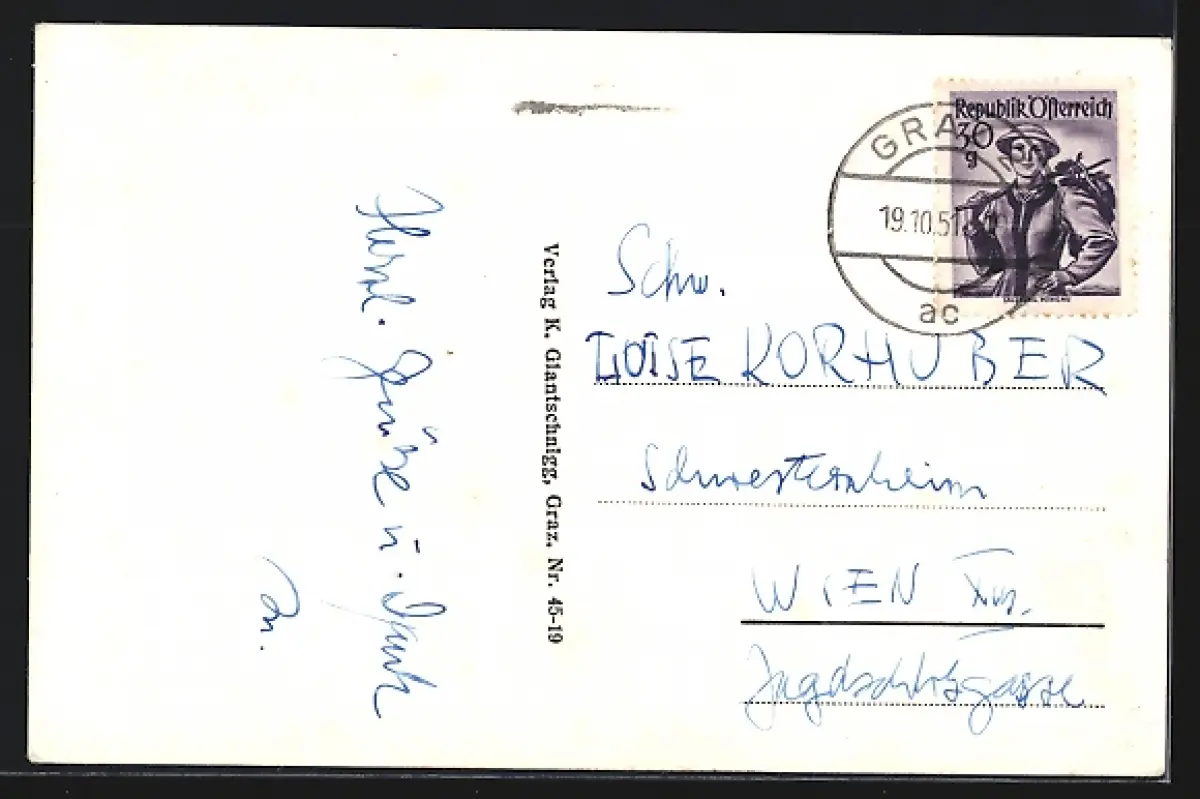 Herzl. Grüße u. Dank
Verlag K. Glantschnigg, Graz. Nr. 45-19
Republik Österreich
30
g
GRAZ
19.10.51
ac
Schw.
LUISE KORHUBER
Schwesternheim
WIEN
Jagdschloßgasse